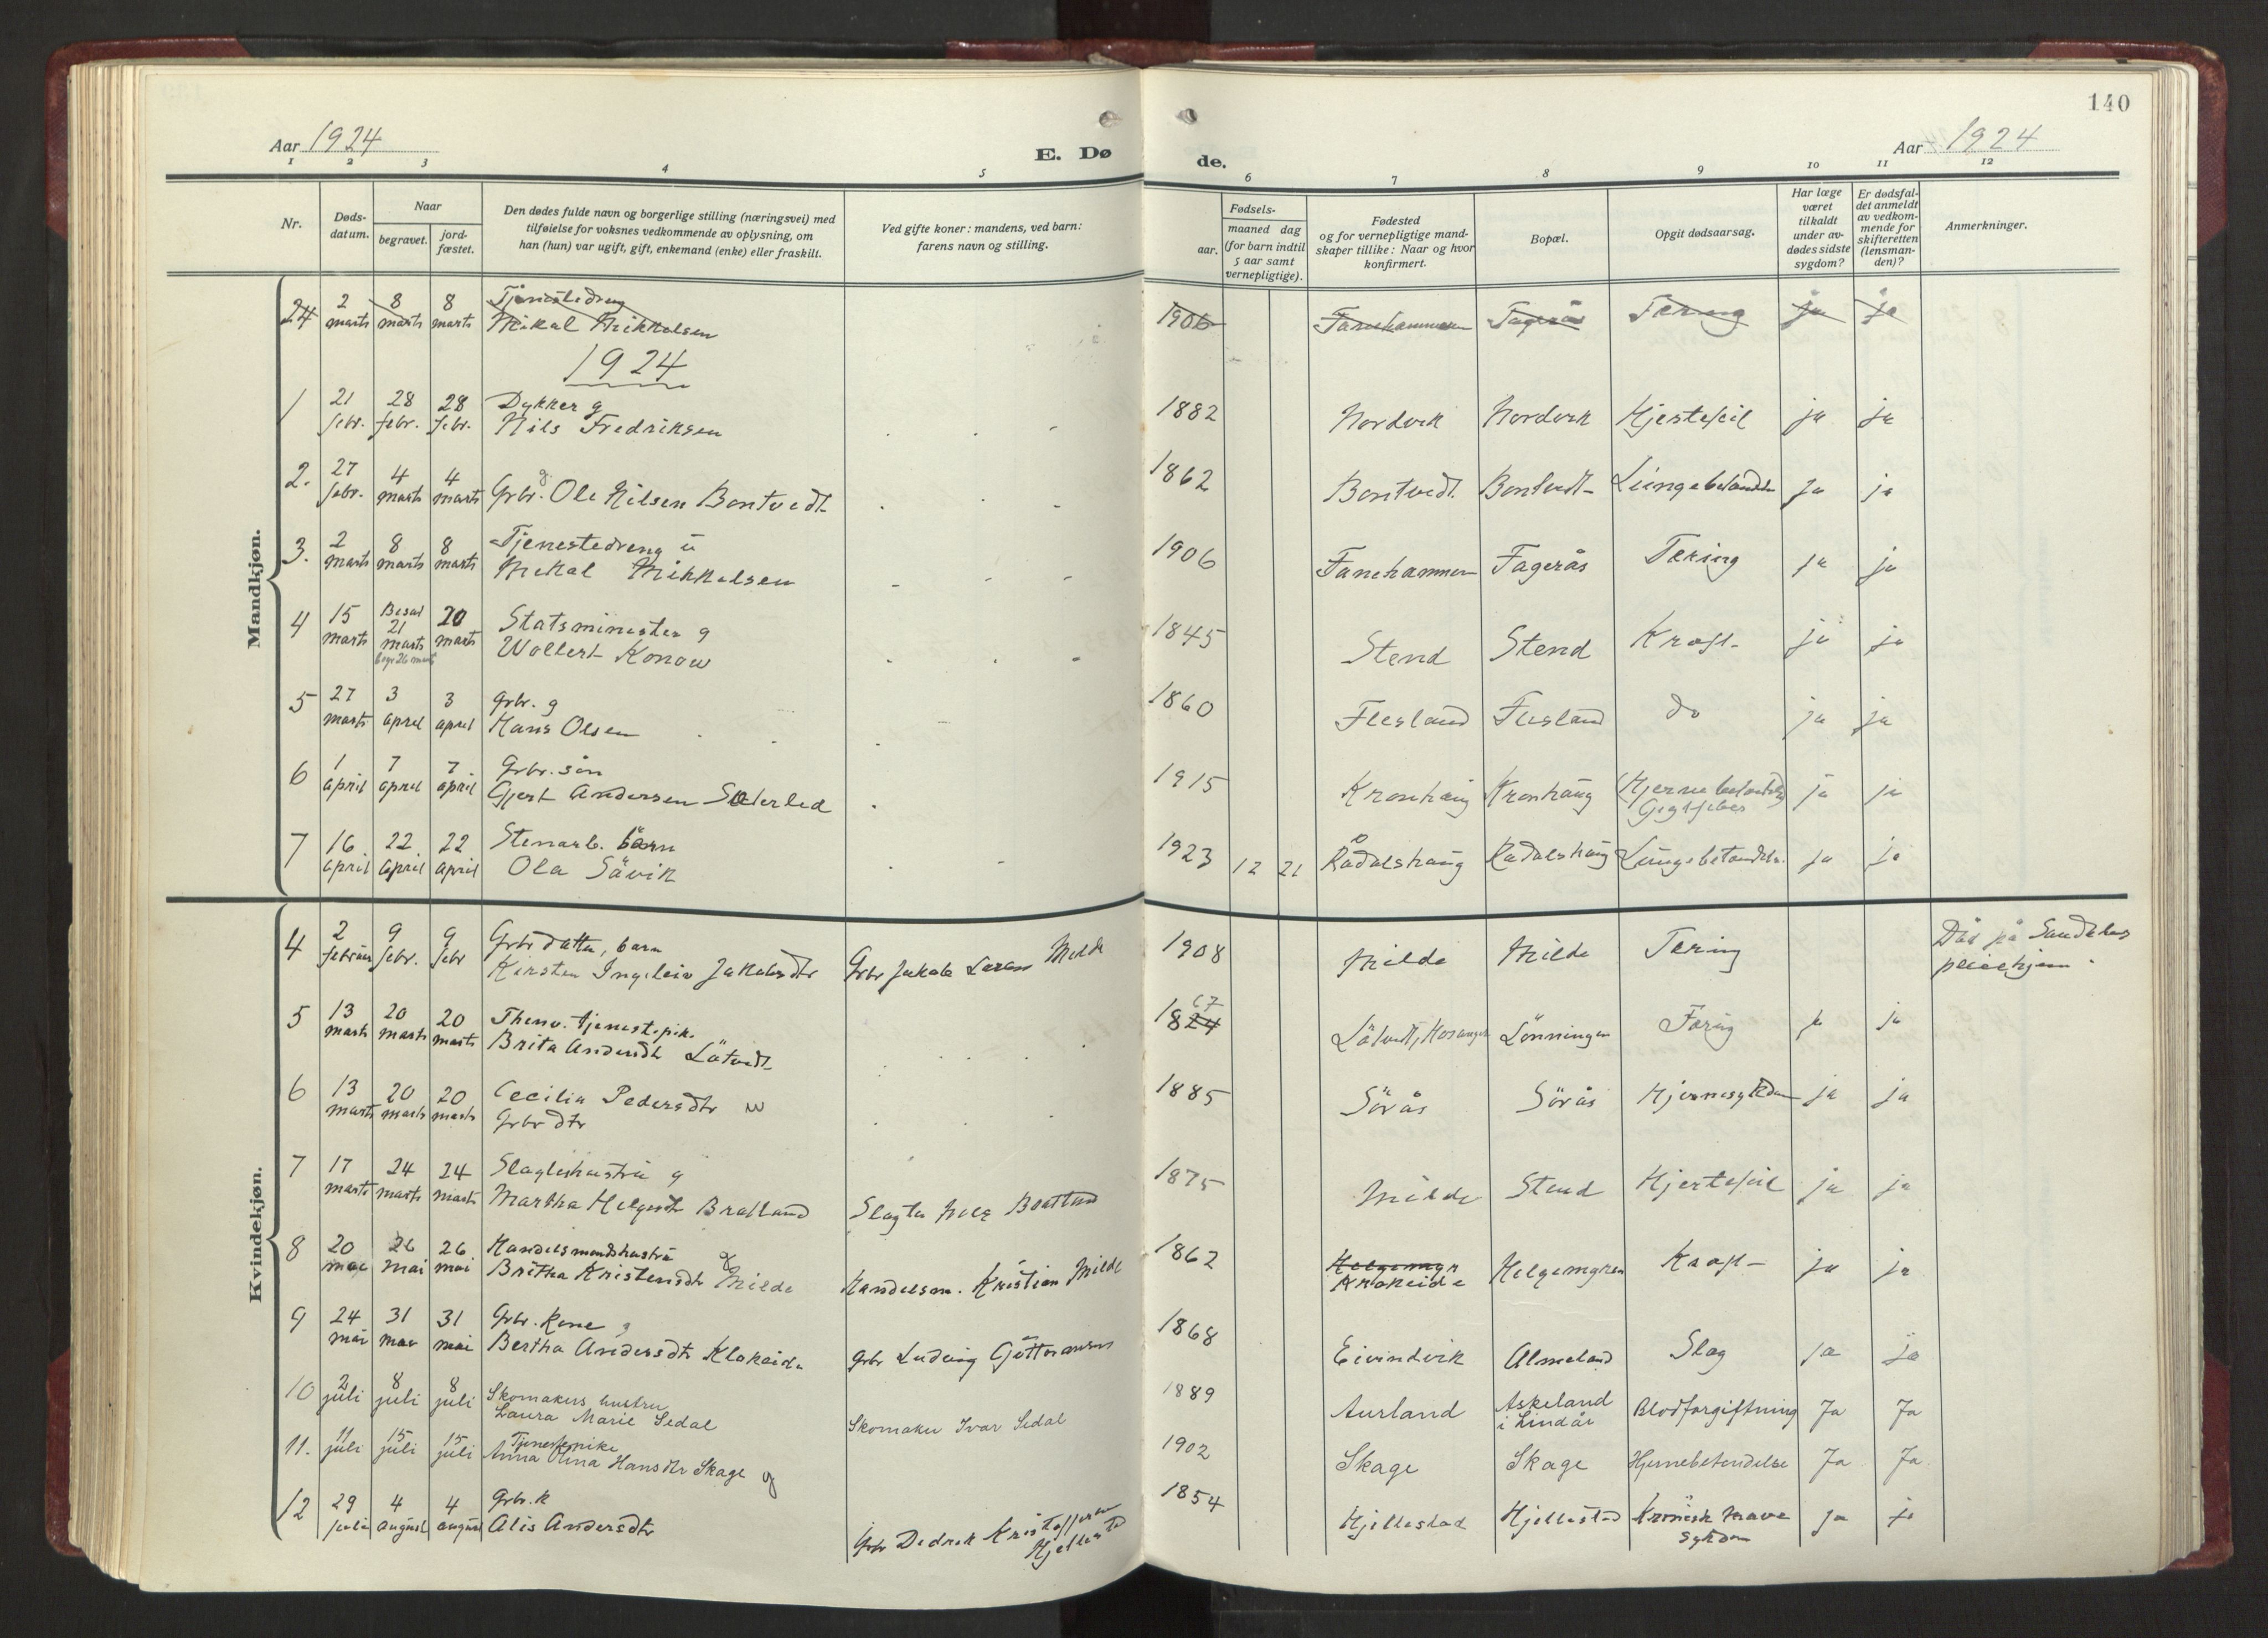 140
Aar 1924
E. Dø
de.
Aar 1924
1 2 3 4 5 6 7 8 9 10 11 12
Nr.
Døds-
datum.
Naar
begravet.
jord-
fæstet.
Den dødes fulde navn og borgerlige stilling (næringsvei) med
tilføielse for voksnes vedkommende av oplysning, om
han (hun) var ugift, gift, enkemand (enke) eller fraskilt.
Ved gifte koner: mandens, ved barn:
farens navn og stilling.
Fødsels-
aar.
maaned dag
(for barn indtil
5 aar samt
vernepligtige).
Fødested
og for vernepligtige mand-
skaper tillike: Naar og hvor
konfirmert.
Bopæl.
Opgit dødsaarsag.
Har læge
været
tilkaldt
under av-
dødes sidste
sygdom?
Er dødsfal-
det anmeldt
av vedkom-
mende for
skifteretten
(lensman-
den)?
Anmerkninger.
Mandkjøn.
24 2 8 8 Tjenestedreng
marts marts marts Mikal Mikkelsen 1906 Fanehammeren Fagerås Tæring ja ja
1924
1 21 28 28 Dykker g
febr. febr. febr. Nils Fredriksen 1882 Nordvik Nordvik Hjertefeil ja ja
2. 27 4 4 g
febr. marts marts Grbr. Ole Nilsen Bontvedt 1862 Bontvedt Bontvedt Lungebetændelse ja ja
3. 2 8 8 Tjenestedreng ü
marts marts marts Mikal Mikkelsen 1906 Fanehammeren Fagerås Tæring ja ja
4 15 Bisat 21 20 Statsminister g
marts marts marts Wollert Konow 1845 Stend Stend Kræft ja ja
begr 26 marts
5 27 3 3 Grbr. g
marts april april Hans Olsen 1860 Flesland Flesland do ja ja
6 1 7 7 Grbr. sön
april april april Gjert Andersen Säterlid 1915 Kronhaug Kronhaug Hjernebetændelse ja ja
Gigtfeber
7 16 22 22 Stenarb. barn
april april april Ola Sävik 1923 12 21 Rådalshaug Rådalshaug Lungebetændelse ja ja
Kvindekjøn.
4 2 9 9 Grbr datter, barn
februar febr. febr Kirsten Ingeleiv Jakobsdtr Grbr Jakob Larsen Milde 1908 Milde Milde Tæring Död på Sandvikens
pleiehjem.
5 13 20 20 tjenestepik.
marts marts marts Brita Andersdtr Låtvedt 1824 67 Låtvedt, Hosanger Lönningen Tæring ja ja
6 13 20 20 Cecilia Pedersdtr
marts marts marts Grbr dtr 1885 Sörås Sörås Hjernesykdom ja ja
7 17 24 24 Slagterhustru g
marts marts marts Martha Helgesdtr Bratland Slagter Bratland 1875 Milde Stend Hjertefeil ja ja
8 20 26 26 Handelsmandshustru g
mai mai mai Britha Kristensdtr Milde Handelsm. Kristian Milde 1862 Helgemyr
Krokeide Helgemyren Kræft ja ja
9 24 31 31 Grbr. kone g
mai mai mai Bertha Andersdtr Klokeide Grbr Ludvig Gjöttormsen 1868 Eivindvik Almeland Slag ja ja
10 2 8 8 Skomakers hustru
juli juli juli Laura Marie Sedal Skomaker Ivar Sedal 1889 Aurland Askeland
i Lindås Blodforgiftning Ja Ja
11. 11 15 15 Tjenestepike
juli juli juli Anna Olina Hansdtr Skage g 1902 Skage Skage Hjernebetendelse Ja Ja
12 29 4 4 Grbr. k
juli august august Alis Andersdtr Grbr Didrik Kristoffersen
Hjellestad 1854 Hjellestad Hjellestad Kronisk mave
sykdom ja ja